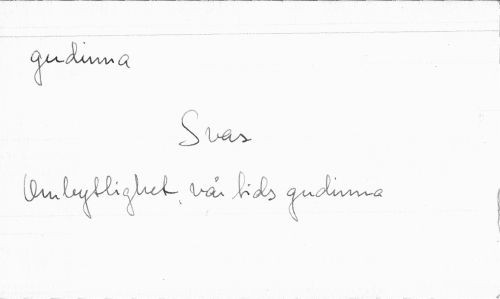 gudinna
Svas
Ombytlighet, vår tids gudinna